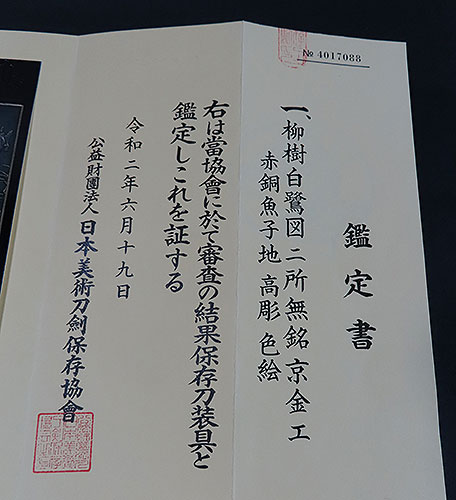 № 4017088
鑑定書
一、柳樹白鷺図二所無銘京金工
赤銅魚子地高彫色絵
右は當協會に於て審査の結果保存刀装具と
鑑定しこれを証する
令和二年六月十九日
公益財團法人日本美術刀劍保存協會